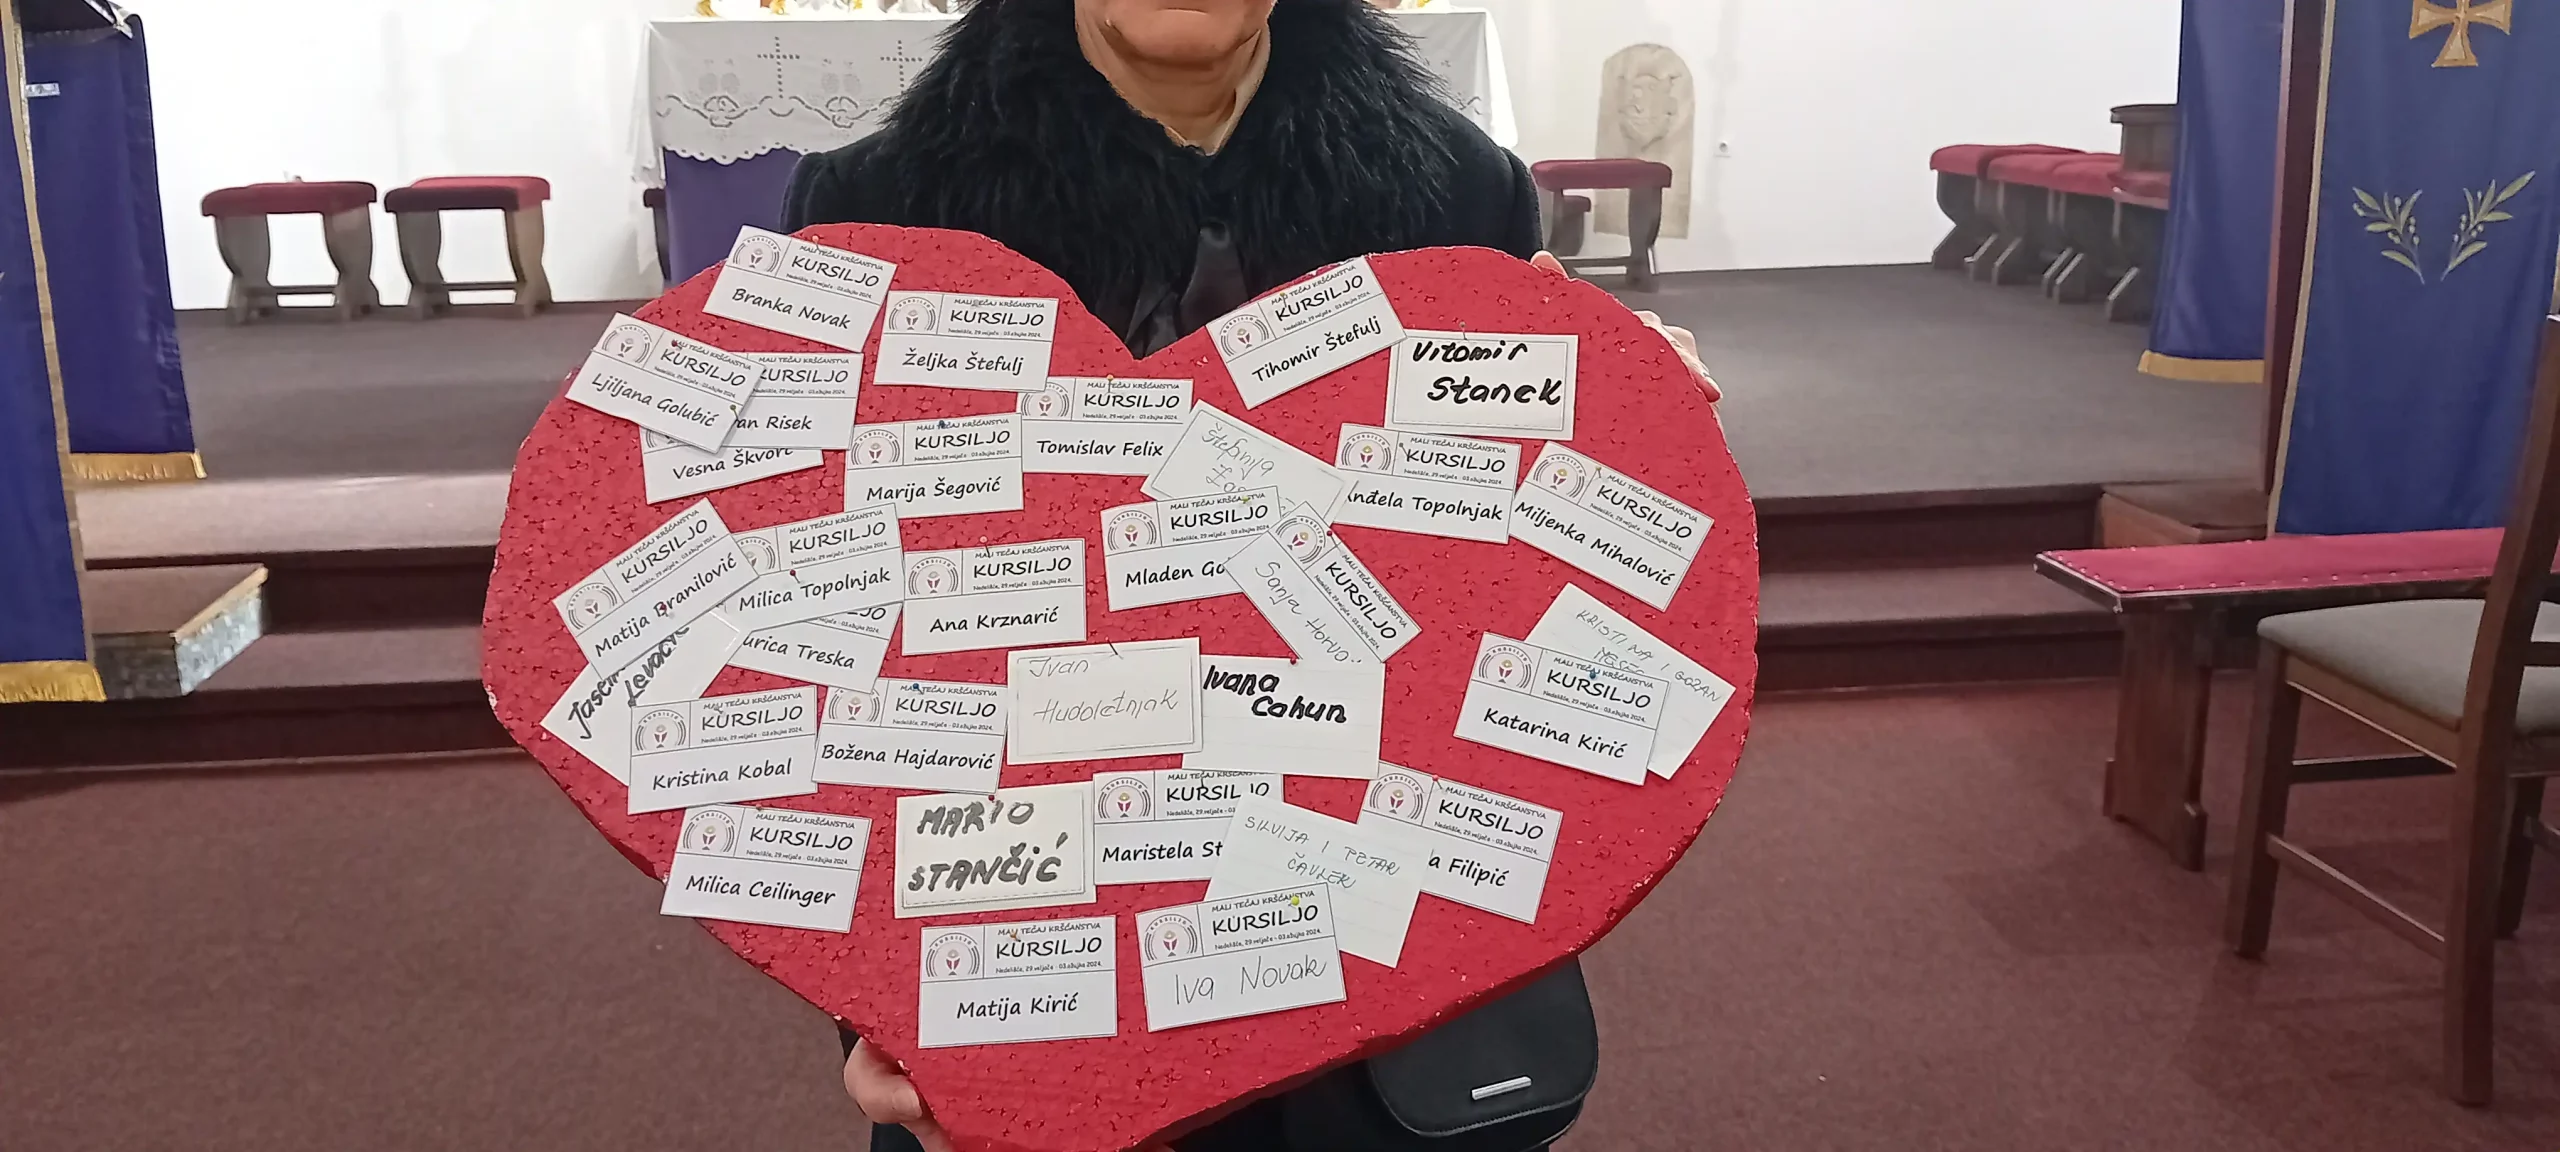 MALI TEČAJ KRŠĆANSTVA
KURSILJO
Nedelišće, 29.veljače - 03.ožujka 2024.
Branka Novak
MALI TEČAJ KRŠĆANSTVA
KURSILJO
Nedelišće, 29.veljače - 03.ožujka 2024.
Željka Štefulj
MALI TEČAJ KRŠĆANSTVA
KURSILJO
Nedelišće, 29.veljače - 03.ožujka 2024.
Tihomir Štefulj
Vitomir
Stanek
MALI TEČAJ KRŠĆANSTVA
KURSILJO
Nedelišće, 29.veljače - 03.ožujka 2024.
Ljiljana Golubić
MALI TEČAJ KRŠĆANSTVA
Risek
Vesna
MALI TEČAJ KRŠĆANSTVA
KURSILJO
Nedelišće, 29.veljače - 03.ožujka 2024.
Marija Šegović
MALI TEČAJ KRŠĆANSTVA
KURSILJO
Nedelišće, 29.veljače - 03.ožujka 2024.
Tomislav Felix
Štefanija
MALI TEČAJ KRŠĆANSTVA
KURSILJO
Nedelišće, 29.veljače - 03.ožujka 2024.
Anđela Topolnjak
MALI TEČAJ KRŠĆANSTVA
KURSILJO
Nedelišće, 29.veljače - 03.ožujka 2024.
Miljenka Mihalović
MALI TEČAJ KRŠĆANSTVA
KURSILJO
Nedelišće, 29.veljače - 03.ožujka 2024.
Matija Branilović
MALI TEČAJ KRŠĆANSTVA
KURSILJO
Nedelišće, 29.veljače - 03.ožujka 2024.
Milica Topolnjak
Treska
MALI TEČAJ KRŠĆANSTVA
KURSILJO
Nedelišće, 29.veljače - 03.ožujka 2024.
Ana Krznarić
MALI TEČAJ KRŠĆANSTVA
KURSILJO
Nedelišće, 29.veljače - 03.ožujka 2024.
Mladen
Sanja
MALI TEČAJ KRŠĆANSTVA
KURSILJO
Nedelišće, 29.veljače - 03.ožujka 2024.
KRISTINA I GORAN
MALI TEČAJ KRŠĆANSTVA
KURSILJO
Nedelišće, 29.veljače - 03.ožujka 2024.
Katarina Kirić
MALI TEČAJ KRŠĆANSTVA
KURSILJO
Nedelišće, 29.veljače - 03.ožujka 2024.
Kristina Kobal
MALI TEČAJ KRŠĆANSTVA
KURSILJO
Nedelišće, 29.veljače - 03.ožujka 2024.
Božena Hajdarović
Ivan
Hudoletnjak
Ivana
Cahun
MALI TEČAJ KRŠĆANSTVA
KURSILJO
Nedelišće, 29.veljače - 03.ožujka 2024.
Milica Ceilinger
MARIO
STANČIĆ
MALI TEČAJ KRŠĆANSTVA
KURSILJO
Maristela St
SILVIJA I PETAR
ČAVLEK
MALI TEČAJ KRŠĆANSTVA
KURSILJO
Nedelišće, 29.veljače - 03.ožujka 2024.
a Filipić
MALI TEČAJ KRŠĆANSTVA
KURSILJO
Nedelišće, 29.veljače - 03.ožujka 2024.
Matija Kirić
MALI TEČAJ KRŠĆANSTVA
KURSILJO
Nedelišće, 29.veljače - 03.ožujka 2024.
Iva Novak